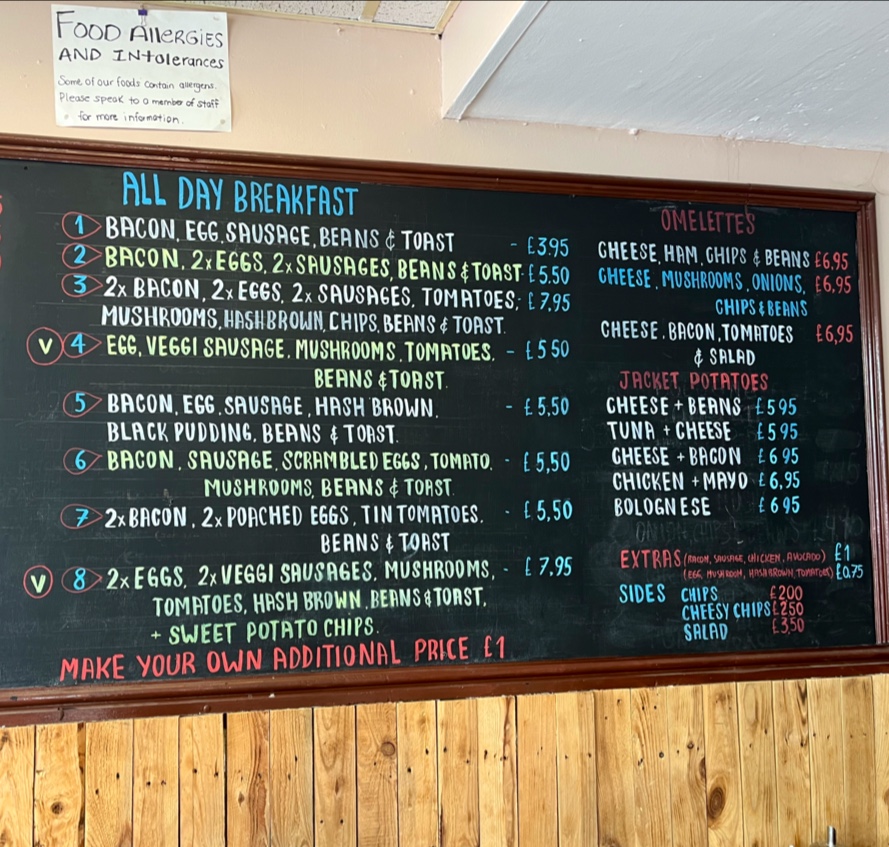 FOOD AllERGiES
AND INtolerances
Some of our foods contain allergens.
Please speak to a member of staff
for more information.
ALL DAY BREAKFAST
1 BACON, EGG, SAUSAGE, BEANS & TOAST - £3.95
2 BACON, 2xEGGS, 2xSAUSAGES, BEANS & TOAST £5.50
3 2x BACON, 2xEGGS, 2x SAUSAGES, TOMATOES, £7,95
MUSHROOMS, HASH BROWN, CHIPS, BEANS & TOAST.
V 4 EGG, VEGGI SAUSAGE, MUSHROOMS, TOMATOES, - £5 50
BEANS & TOAST.
5 BACON, EGG, SAUSAGE, HASH BROWN, - £5,50
BLACK PUDDING, BEANS & TOAST.
6 BACON, SAUSAGE, SCRAMBLED EGGS, TOMATO, - £5,50
MUSHROOMS, BEANS & TOAST
7 2xBACON, 2x POACHED EGGS, TIN TOMATOES. - £5,50
BEANS & TOAST
V 8 2x EGGS, 2x VEGGI SAUSAGES, MUSHROOMS, - £7,95
TOMATOES, HASH BROWN, BEANS & TOAST,
+ SWEET POTATO CHIPS.
MAKE YOUR OWN ADDITIONAL PRICE £1
OMELETTES
CHEESE, HAM, CHIPS & BEANS £6,95
CHEESE, MUSHROOMS, ONIONS, £6,95
CHIPS & BEANS
CHEESE, BACON, TOMATOES £6,95
& SALAD
JACKET POTATOES
CHEESE + BEANS £5 95
TUNA + CHEESE £5 95
CHEESE + BACON £6 95
CHICKEN + MAYO £6,95
BOLOGNESE £6 95
EXTRAS (BACON, SAUSAGE, CHICKEN, AVOCADO) £1
(EGG, MUSHROOM, HASH BROWN, TOMATOES) £0.75
SIDES CHIPS £200
CHEESY CHIPS £250
SALAD £3,50